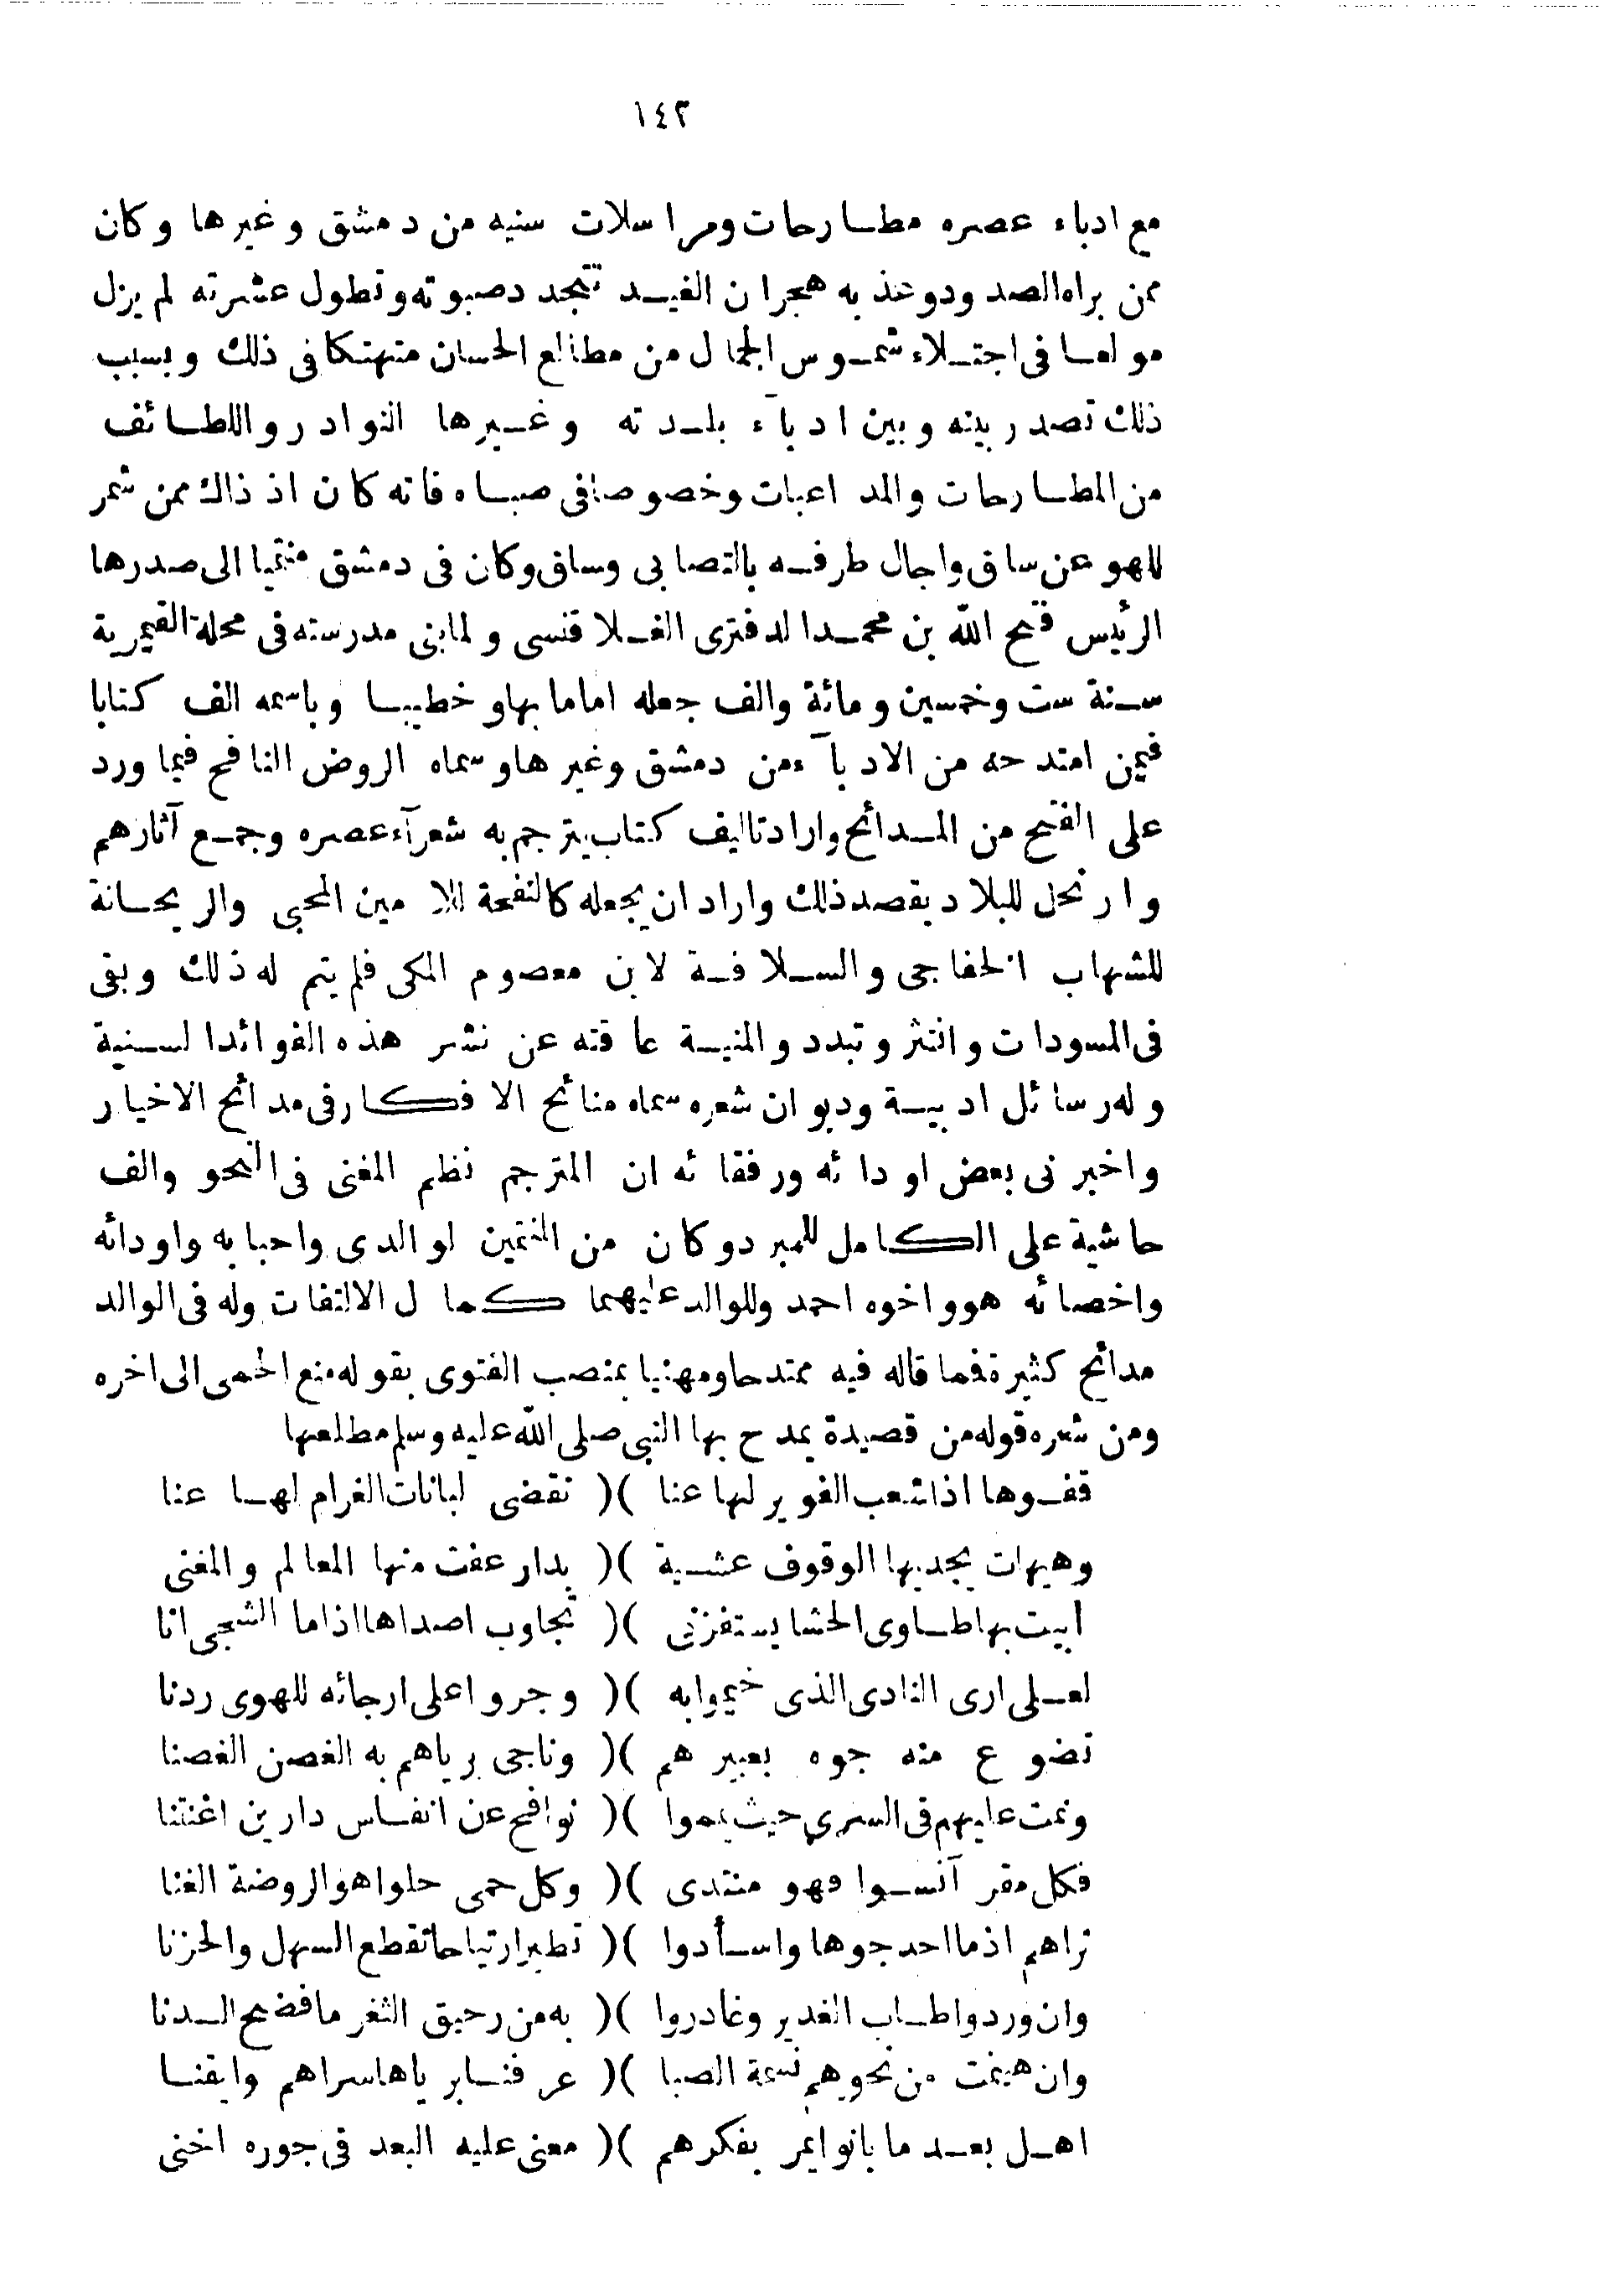 ١٤٢
مع ادباء عصره مطارحات ومراسلات سنيه من دمشق وغيرها وكان
ممن براه الصد ودوعذبه هجران الغيد تتجدد صبوته وتطول عشرته لم يزل
مولعا فى اجتلاء شموس الجمال من مطالع الحسان متهتكا فى ذلك وبسبب
ذلك تصدر بينه وبين ادبآء بلدته وغيرها النوادر واللطائف
من المطارحات والمداعبات وخصوصا فى صباه فانه كان اذ ذاك ممن شمر
للهو عن ساق واجال طرفه بالتصابى وساق وكان فى دمشق منتميا الى صدرها
الرئيس فتح الله بن محمد الدفترى الفلاقنسى ولما بنى مدرسته فى محلة القيمرية
سنة ست وخمسين ومائة والف جعله اماما بها وخطيبا وباسمه الف كتابا
فيمن امتدحه من الادبآء من دمشق وغيرها وسماه الروض النافح فيما ورد
على الفتح من المدائح واراد تاليف كتاب يترجم به شعرآء عصره وجمع آثارهم
وارتحل للبلاد بقصد ذلك واراد ان يجعله كالنفحة للامين المحبى والريحانة
للشهاب الخفاجى والسلافة لابن معصوم المكى فلم يتم له ذلك وبقى
فى المسودات وانتثر وتبدد والمنية عاقته عن نشر هذه الفوائد السنية
وله رسائل ادبية وديوان شعره سماه منائح الافكار فى مدائح الاخيار
واخبرنى بعض اودائه ورفقائه ان المترجم نظم المغنى فى النحو والف
حاشية على الكامل للمبرد وكان من المنتمين لوالدى واحبابه واودائه
واخصائه هو واخوه احمد وللوالد عليهما كمال الالتفات وله فى الوالد
مدائح كثيرة فما قاله فيه ممتدحا ومهنيا بمنصب الفتوى بقوله منع الحمى الى اخره
ومن شعره قوله من قصيدة يمدح بها النبى صلى الله عليه وسلم مطلعها
قفوها اذا شعب الغوير لها عنا )( نقضى لبانات الغرام لها عنا
وهيهات يجديها الوقوف عشية )( بدار عفت منها المعالم والمغنى
أبيت بها طاوى الحشا يستفزنى )( تجاوب اصداها اذا ما الشجى انا
لعلى ارى النادى الذى خيموا به )( وجروا على ارجائه للهوى ردنا
تضوع منه جوه بعبيرهم )( وناجى برياهم به الغصن الغصنا
ونمت عليهم فى السرى حيث يمموا )( نوافح عن انفاس دارين اغنتنا
فكل مقر آنسوا فهو منتدى )( وكل حمى حلوا هو الروضة الغنا
تراهم اذ ما احدجوها واسأدوا )( تطير ارتياحا تقطع السهل والحزنا
وان وردوا طاب الغدير وغادروا )( به من رحيق الثغر ما فضح الدنا
وان هينمت من نحويهم نسمة الصبا )( عرفنا برياها سراهم وايقنا
اهل بعد ما بانوا يمر بفكرهم )( معنى عليه البعد فى جوره اخنى